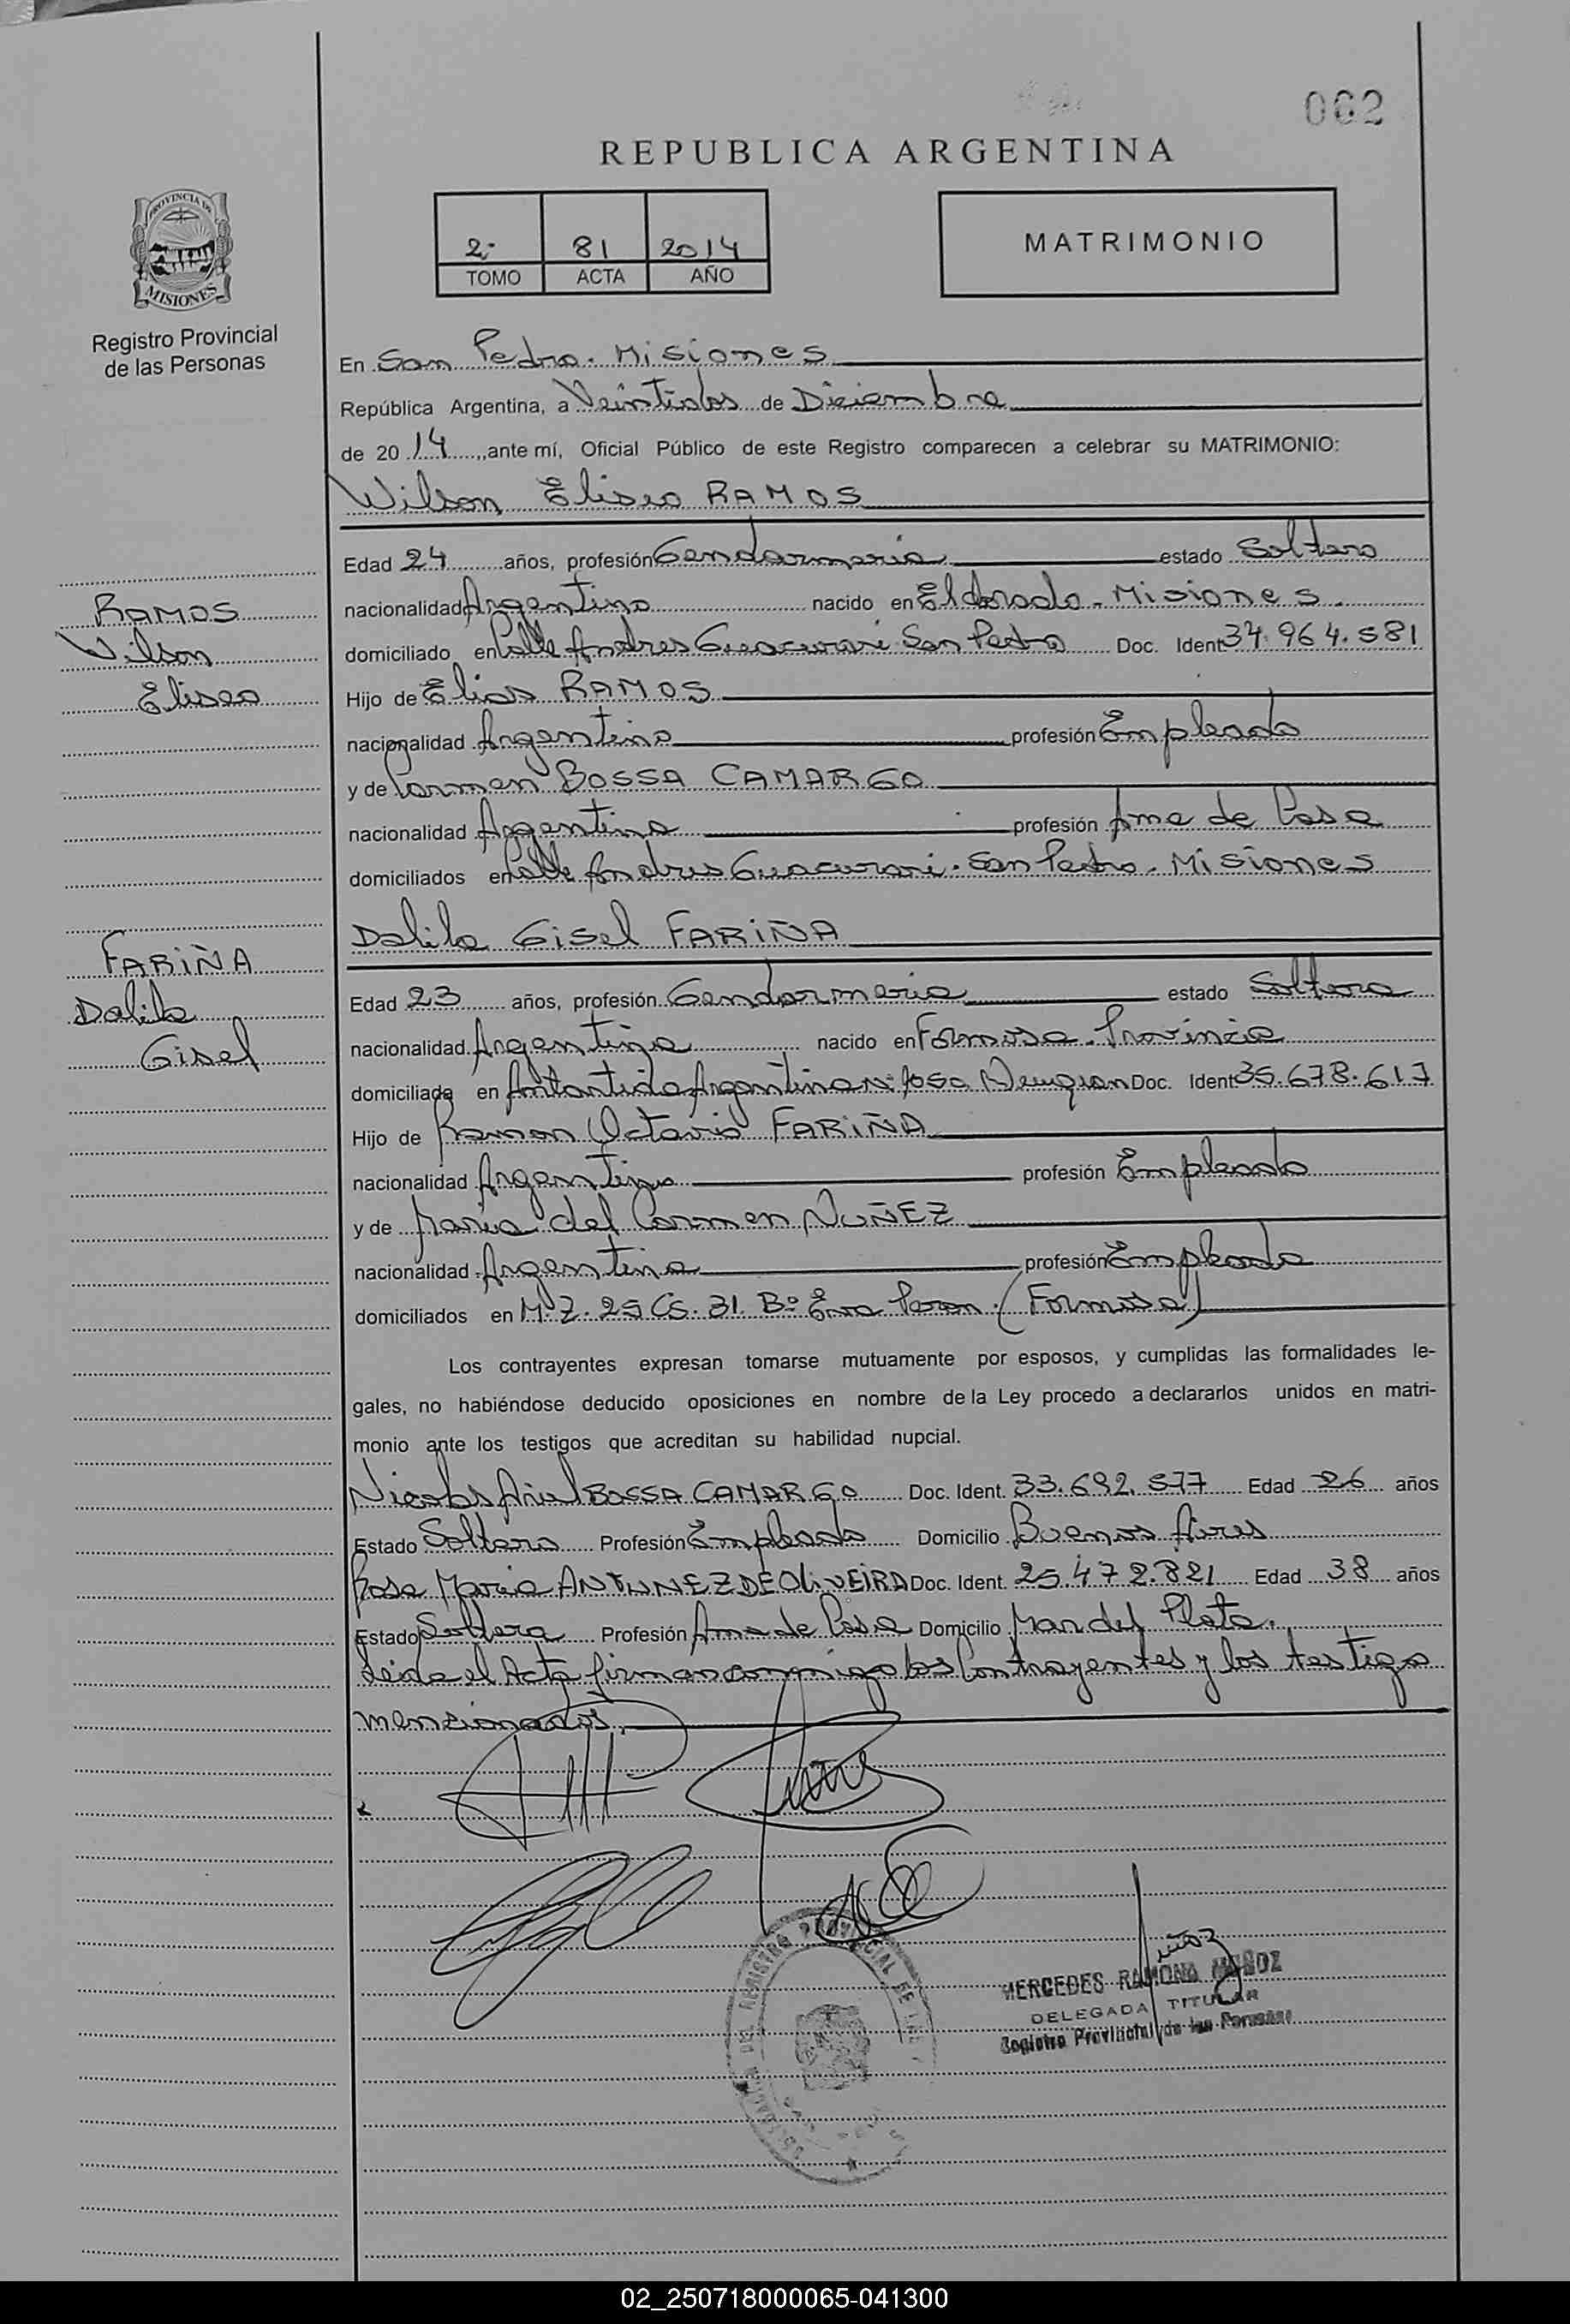 062
REPUBLICA ARGENTINA
PROVINCIA DE
MISIONES
Registro Provincial
de las Personas
2º 81 2014
TOMO ACTA AÑO
MATRIMONIO
En San Pedro. Misiones
República Argentina, a Veintidos de Diciembre
de 2014, ante mí, Oficial Público de este Registro comparecen a celebrar su MATRIMONIO:
Wilson Eliseo RAMOS
RAMOS
Wilson
Eliseo
Edad 24 años, profesión Gendarmeria estado Soltero
nacionalidad Argentina nacido en Eldorado - Misiones.
domiciliado en Calle Andres Guacurari San Pedro Doc. Ident 34.964.581
Hijo de Elias RAMOS
nacionalidad Argentina profesión Empleado
y de Carmen BOSSA CAMARGO
nacionalidad Argentina profesión Ama de Casa
domiciliados en Calle Andres Guacurari. San Pedro. Misiones
Dalila Gisel FARIÑA
FARIÑA
Dalila
Gisel
Edad 23 años, profesión Gendarmeria estado Soltera
nacionalidad Argentina nacido en Formosa. Provincia
domiciliada en Antartida Argentina Nº 1050 Neuquen Doc. Ident 35.678.617
Hijo de Ramon Octavio FARIÑA
nacionalidad Argentina profesión Empleado
y de Maria del Carmen NUÑEZ
nacionalidad Argentina profesión Empleada
domiciliados en M.Z. 25 CS. 31. Bº Eva Peron. (Formosa)
Los contrayentes expresan tomarse mutuamente por esposos, y cumplidas las formalidades le-
gales, no habiéndose deducido oposiciones en nombre de la Ley procedo a declararlos unidos en matri-
monio ante los testigos que acreditan su habilidad nupcial.
Nicolas Ariel BOSSA CAMARGO Doc. Ident. 33.692.577 Edad 26 años
Estado Soltero Profesión Empleado Domicilio Buenos Aires
Rosa Maria ANTUNEZ DE OLIVEIRA Doc. Ident. 25.472.821 Edad 38 años
Estado Soltera Profesión Ama de Casa Domicilio Mar del Plata.
Leida el Acta firman conmigo los Contrayentes y los testigo
mencionados.
MERCEDES RAMONA MUÑOZ
DELEGADA TITULAR
Registro Provincial de las Personas
02_250718000065-041300